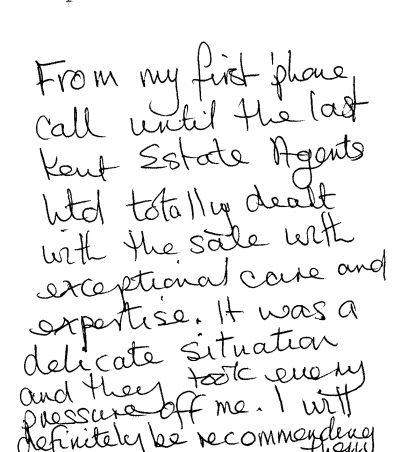 From my first 'phone
call until the last
Kent Estate Agents
Ltd totally dealt
with the sale with
exceptional care and
expertise. It was a
delicate situation
and they took every
pressure off me. I will
definitely be recommending
them